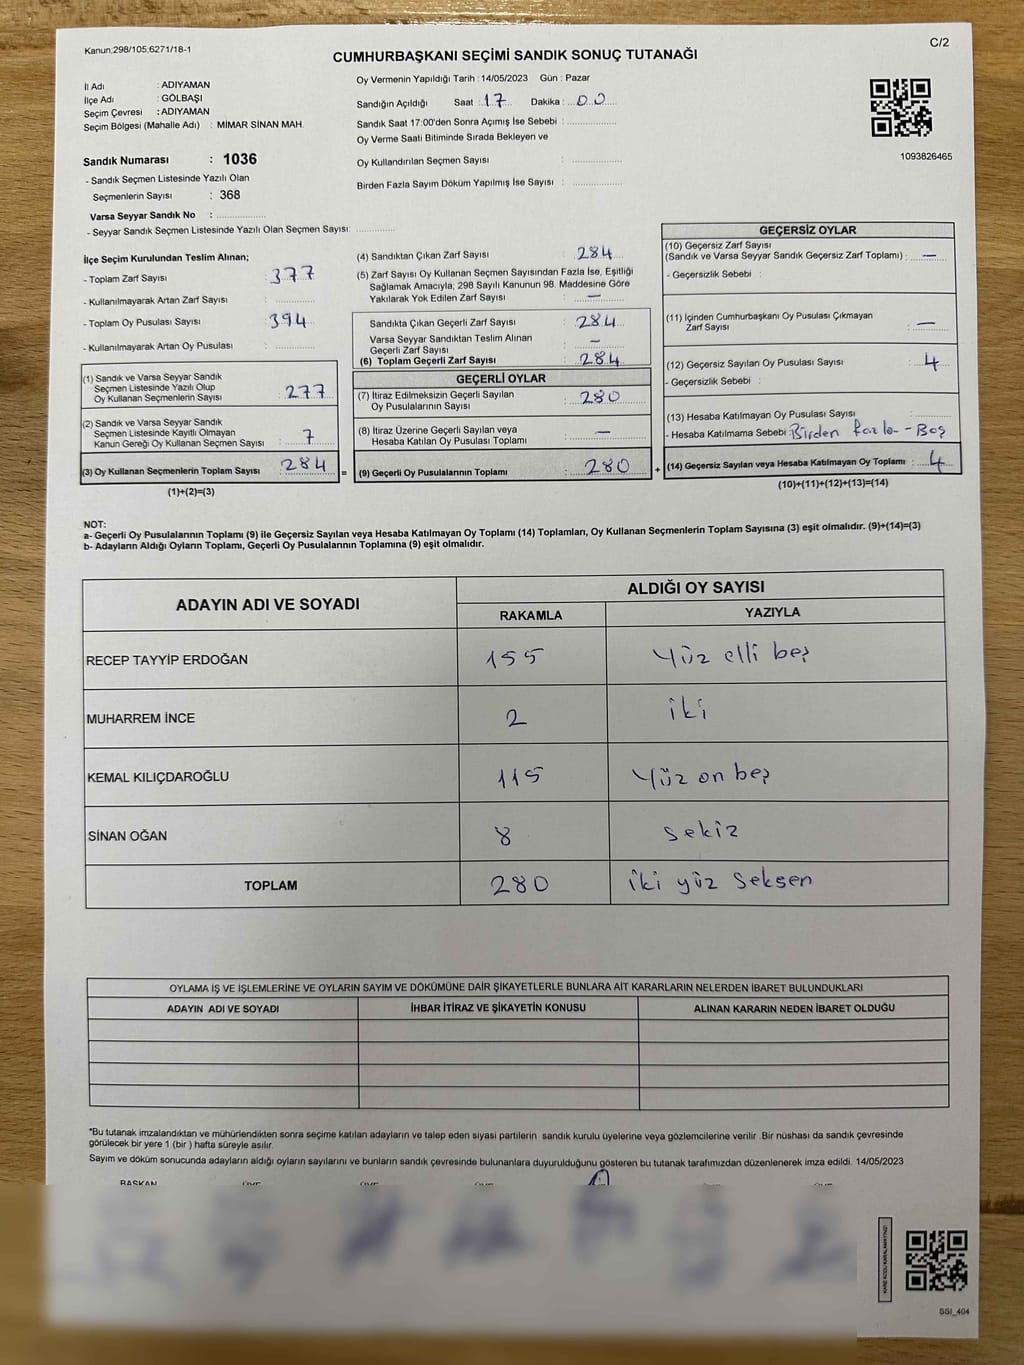 Kanun;298/105,6271/18-1
C/2
CUMHURBAŞKANI SEÇİMİ SANDIK SONUÇ TUTANAĞI
İl Adı : ADIYAMAN
İlçe Adı : GÖLBAŞI
Seçim Çevresi : ADIYAMAN
Seçim Bölgesi (Mahalle Adı) : MİMAR SİNAN MAH.
Sandık Numarası : 1036
- Sandık Seçmen Listesinde Yazılı Olan
Seçmenlerin Sayısı : 368
Varsa Seyyar Sandık No :
- Seyyar Sandık Seçmen Listesinde Yazılı Olan Seçmen Sayısı:
Oy Vermenin Yapıldığı Tarih : 14/05/2023 Gün : Pazar
Sandığın Açıldığı Saat : 17 Dakika : 00
Sandık Saat 17:00'den Sonra Açımış İse Sebebi :
Oy Verme Saati Bitiminde Sırada Bekleyen ve
Oy Kullandırılan Seçmen Sayısı :
Birden Fazla Sayım Döküm Yapılmış İse Sayısı :
1093826465
İlçe Seçim Kurulundan Teslim Alınan;
- Toplam Zarf Sayısı : 377
- Kullanılmayarak Artan Zarf Sayısı :
- Toplam Oy Pusulası Sayısı : 394
- Kullanılmayarak Artan Oy Pusulası :
(1) Sandık ve Varsa Seyyar Sandık
Seçmen Listesinde Yazılı Olup
Oy Kullanan Seçmenlerin Sayısı : 277
(2) Sandık ve Varsa Seyyar Sandık
Seçmen Listesinde Kayıtlı Olmayan
Kanun Gereği Oy Kullanan Seçmen Sayısı : 7
(3) Oy Kullanan Seçmenlerin Toplam Sayısı : 284 =
(1)+(2)=(3)
(4) Sandıktan Çıkan Zarf Sayısı : 284
(5) Zarf Sayısı Oy Kullanan Seçmen Sayısından Fazla İse, Eşitliği
Sağlamak Amacıyla; 298 Sayılı Kanunun 98. Maddesine Göre
Yakılarak Yok Edilen Zarf Sayısı : —
Sandıkta Çıkan Geçerli Zarf Sayısı : 284
Varsa Seyyar Sandıktan Teslim Alınan
Geçerli Zarf Sayısı : —
(6) Toplam Geçerli Zarf Sayısı : 284
GEÇERLİ OYLAR
(7) İtiraz Edilmeksizin Geçerli Sayılan
Oy Pusulalarının Sayısı : 280
(8) İtiraz Üzerine Geçerli Sayılan veya
Hesaba Katılan Oy Pusulası Toplamı : —
(9) Geçerli Oy Pusulalarının Toplamı : 280 +
GEÇERSİZ OYLAR
(10) Geçersiz Zarf Sayısı
(Sandık ve Varsa Seyyar Sandık Geçersiz Zarf Toplamı) : —
- Geçersizlik Sebebi :
(11) İçinden Cumhurbaşkanı Oy Pusulası Çıkmayan
Zarf Sayısı : —
(12) Geçersiz Sayılan Oy Pusulası Sayısı : 4
- Geçersizlik Sebebi :
(13) Hesaba Katılmayan Oy Pusulası Sayısı :
- Hesaba Katılmama Sebebi : Birden fazla - Boş
(14) Geçersiz Sayılan veya Hesaba Katılmayan Oy Toplamı : 4
(10)+(11)+(12)+(13)=(14)
NOT:
a- Geçerli Oy Pusulalarının Toplamı (9) ile Geçersiz Sayılan veya Hesaba Katılmayan Oy Toplamı (14) Toplamları, Oy Kullanan Seçmenlerin Toplam Sayısına (3) eşit olmalıdır. (9)+(14)=(3)
b- Adayların Aldığı Oyların Toplamı, Geçerli Oy Pusulalarının Toplamına (9) eşit olmalıdır.
ADAYIN ADI VE SOYADI
ALDIĞI OY SAYISI
RAKAMLA YAZIYLA
RECEP TAYYİP ERDOĞAN 155 Yüz elli beş
MUHARREM İNCE 2 iki
KEMAL KILIÇDAROĞLU 115 Yüz on beş
SİNAN OĞAN 8 sekiz
TOPLAM 280 iki yüz seksen
OYLAMA İŞ VE İŞLEMLERİNE VE OYLARIN SAYIM VE DÖKÜMÜNE DAİR ŞİKAYETLERLE BUNLARA AİT KARARLARIN NELERDEN İBARET BULUNDUKLARI
ADAYIN ADI VE SOYADI İHBAR İTİRAZ VE ŞİKAYETİN KONUSU ALINAN KARARIN NEDEN İBARET OLDUĞU
*Bu tutanak imzalandıktan ve mühürlendikten sonra seçime katılan adayların ve talep eden siyasi partilerin sandık kurulu üyelerine veya gözlemcilerine verilir .Bir nüshası da sandık çevresinde
görülecek bir yere 1 (bir ) hafta süreyle asılır.
Sayım ve döküm sonucunda adayların aldığı oyların sayılarını ve bunların sandık çevresinde bulunanlara duyurulduğunu gösteren bu tutanak tarafımızdan düzenlenerek imza edildi. 14/05/2023
BAŞKAN
SSI_404